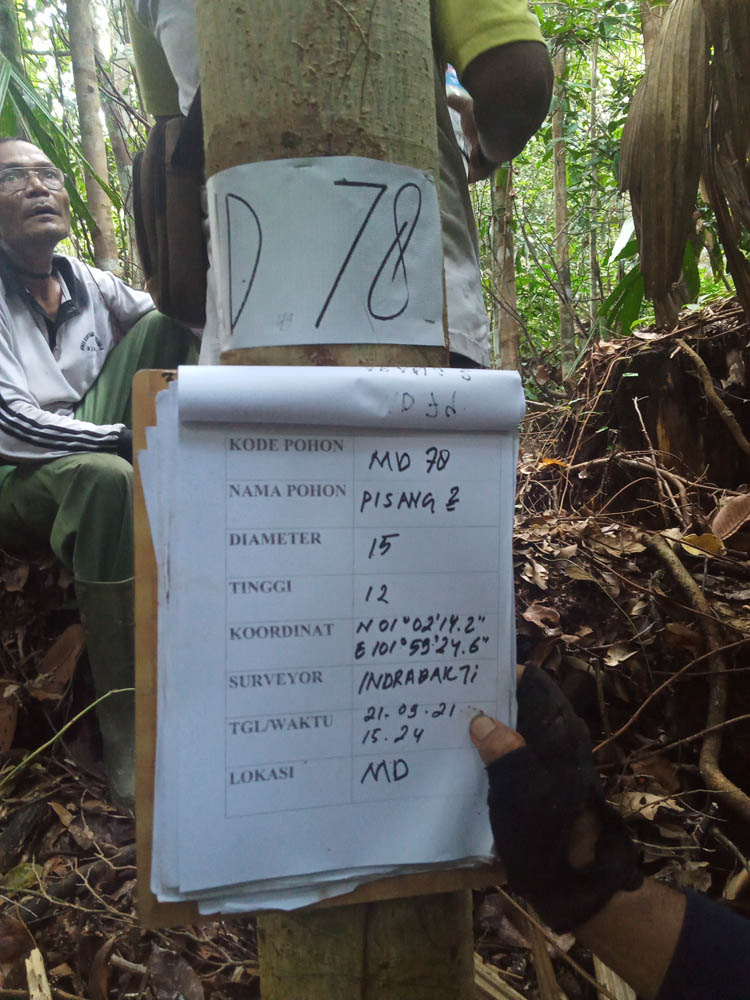 D 78
KODE POHON MD 78
NAMA POHON PISANG2
DIAMETER 15
TINGGI 12
KOORDINAT N 01°02'14.2"
E 101°59'24.6"
SURVEYOR INDRABAKTI
TGL/WAKTU 21.09.21
15.24
LOKASI MD